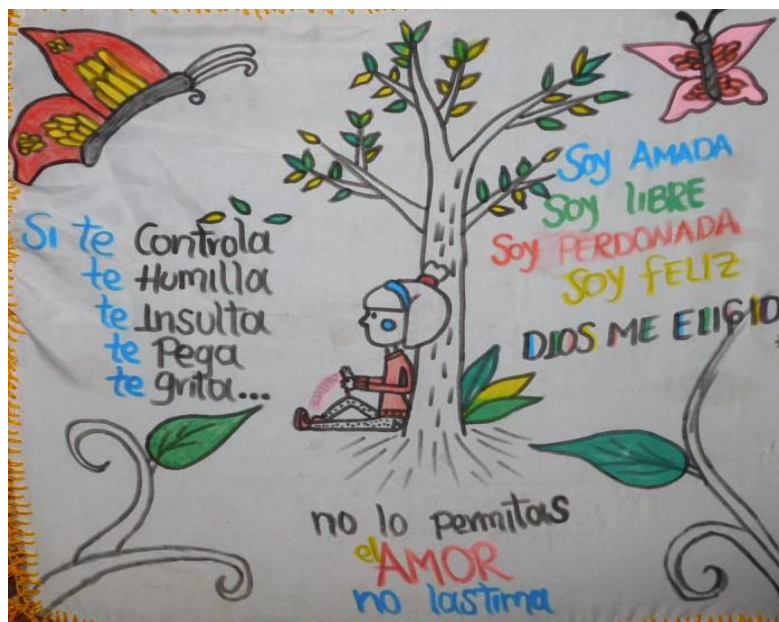 Si te Controla
te Humilla
te Insulta
te Pega
te grita...
Soy AMADA
Soy lIBRE
Soy PERDONADA
Soy fELIZ
DIOS ME ElIGIO
no lo permitas
el AMOR
no lastima